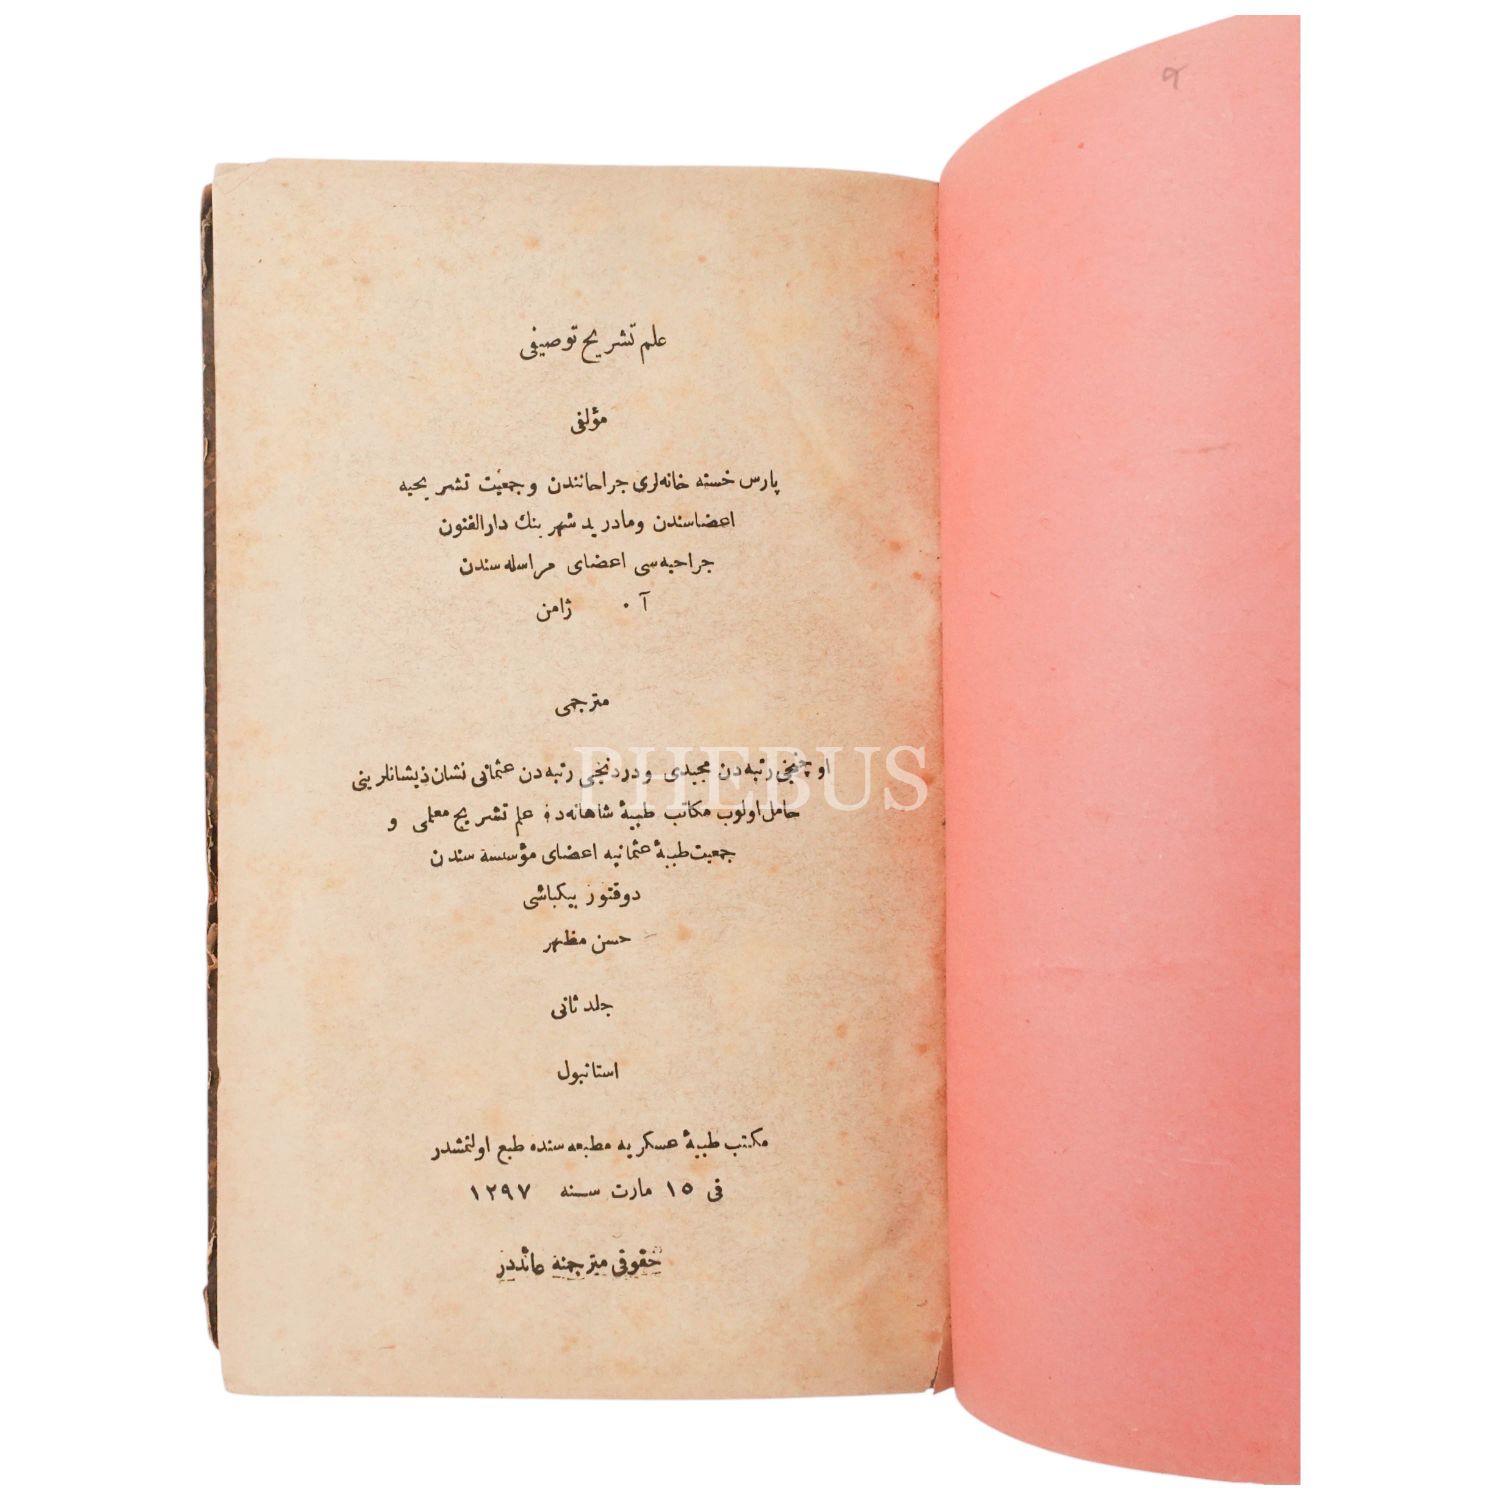 علم تشریح توصیفی
مؤلفی
پارس خسته خانه‌لری جراحانندن و جمعیت تشریحیه
اعضاسندن و مادرید شهرینك دار الفنون
جراحیه‌سی اعضای مراسله سندن
آ . ژامن
مترجمی
اوچنجی رتبه‌دن مجیدی و دردنجی رتبه‌دن عثمانی نشان ذیشانلرینی
حامل اولوب مکاتب طبیۀ شاهانه‌ده علم تشریح معلمی و
جمعیت طبیۀ عثمانیه اعضای مؤسسه سندن
دوقتور بیکباشی
حسن مظهر
جلد ثانی
استانبول
مکتب طبیۀ عسکریه مطبعه سنده طبع اولنمشدر
فی ١٥ مارت سنه ١٢٩٧
حقوقی مترجمنه عائددر
PHEBUS